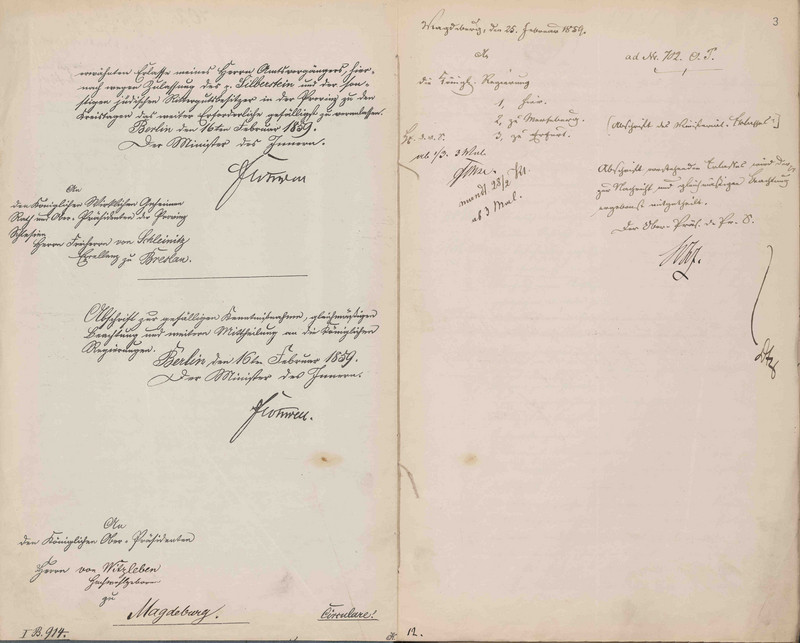 erwähnten Erlasse meines Herrn Amtsvorgängers, hier-
nach wegen Zulassung des p. Silberstein und der son-
stigen jüdischen Rittergutsbesitzer in der Provinz zu den
Kreistagen das weiter Erforderliche gefälligst zu veranlassen.
Berlin den 16ten Februar 1859.
Der Minister des Innern.
Flottwell
An
den Königlichen Wirklichen Geheimen
Rath und Ober-Präsidenten der Provinz
Schlesien
Herrn Freiherrn von Schleinitz
Excellenz zu Breslau.
Abschrift zur gefälligen Kenntnißnahme, gleichmäßigen
Beachtung und weitern Mittheilung an die Königlichen
Regierungen.
Berlin den 16ten Februar 1859.
Der Minister des Innern.
Flottwell.
An
den Königlichen Ober-Präsidenten
Herrn von Witzleben
Hochwohlgeboren
zu
Magdeburg.
Circulare!
I B. 914.
3
Magdeburg, den 25. Februar 1859.
An
die Königl. Regierung
1, hier.
2, zu Merseburg.
3, zu Erfurt.
ab 1/3. 3 Mal
mundt 28/2
ab 3 Mal.
ad Nr. 702. O. P.
(Abschrift des Minist. Erlasses)
Abschrift vorstehenden Erlasses wird der
zur Nachricht und gleichmäßigen Beachtung
ergebenst mitgetheilt.
Der Ober-Präs. d. Pr. S.
12.